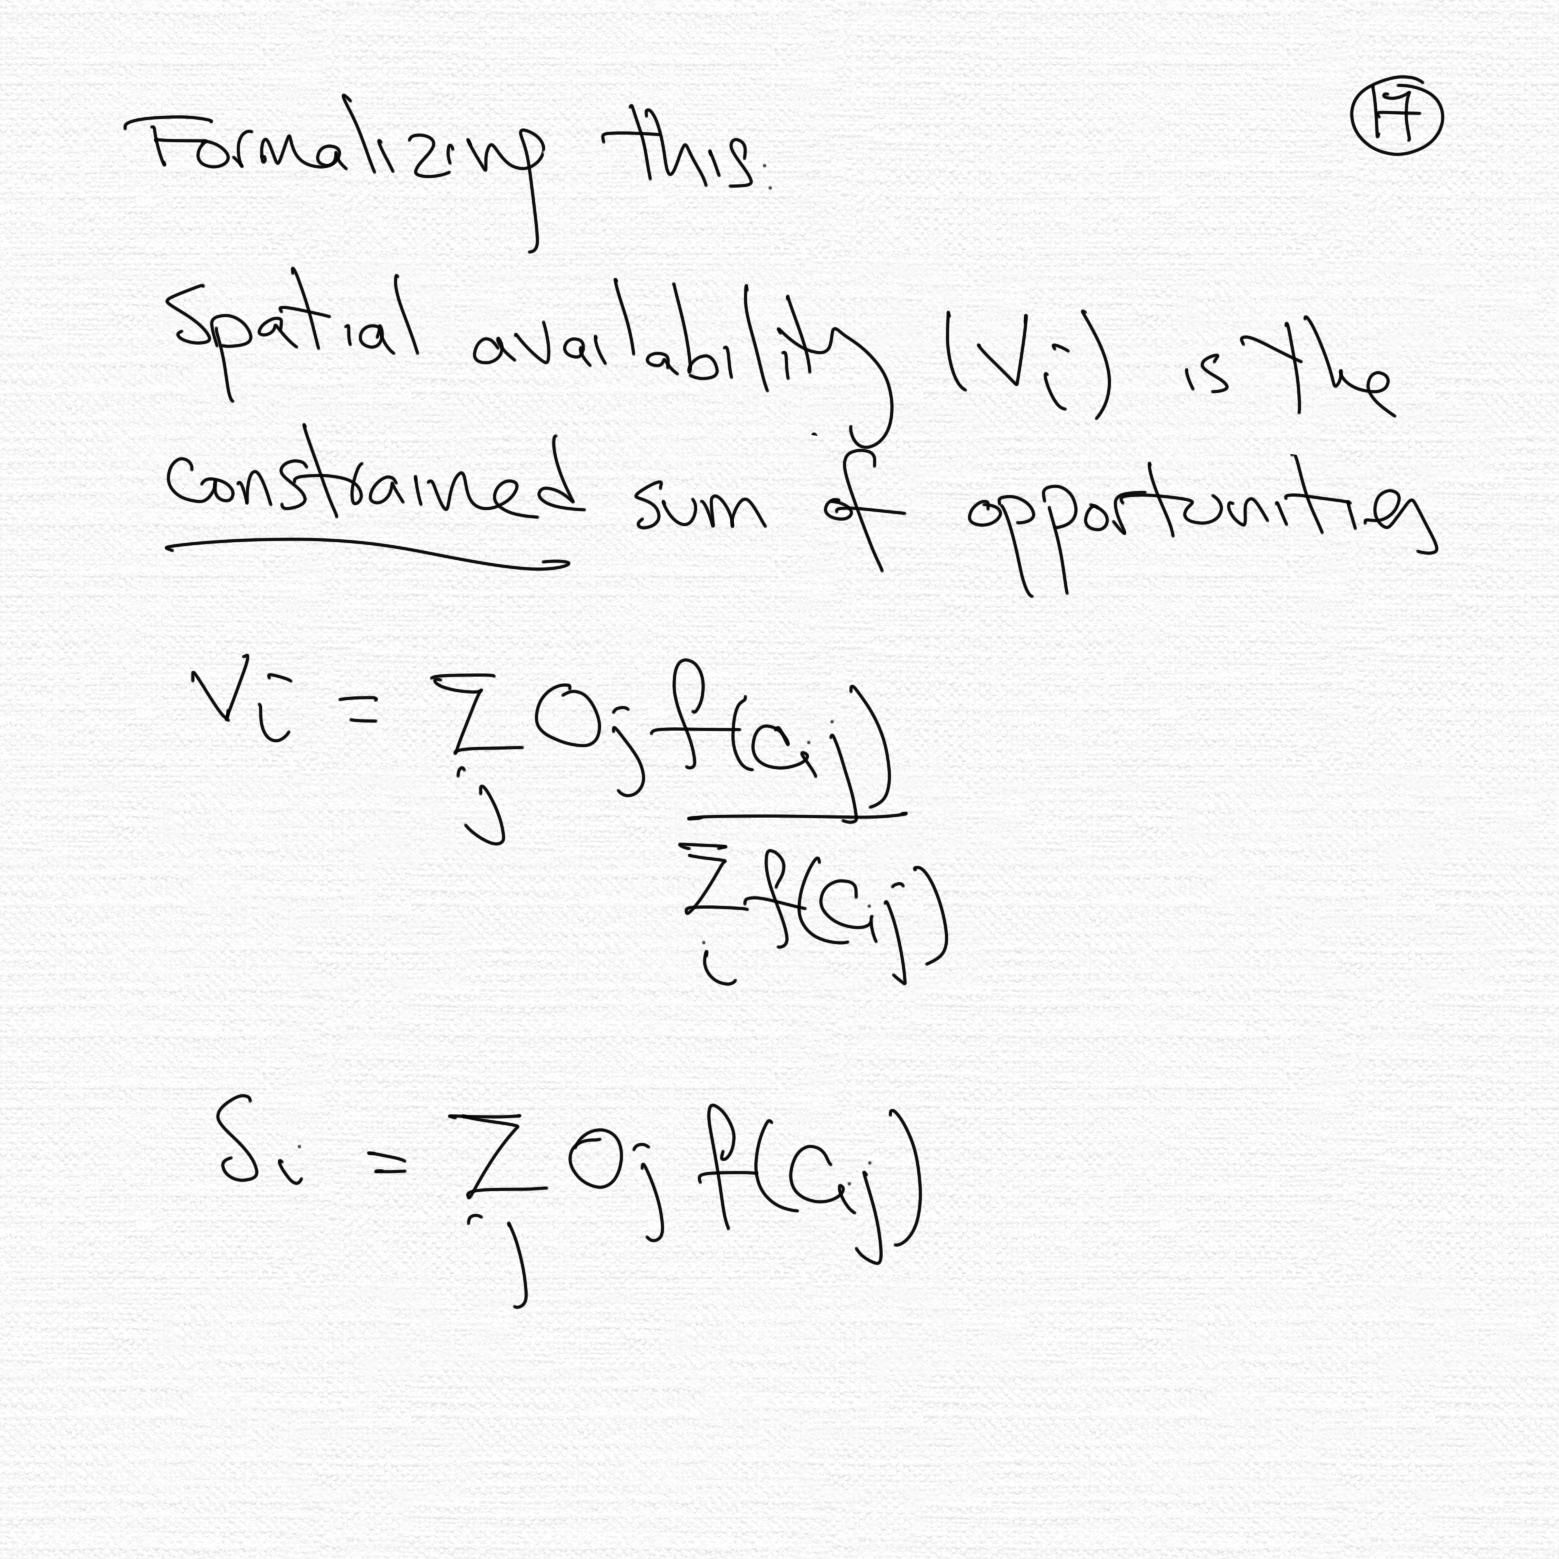 17
Formalizing this:
Spatial availability (Vi) is the
constrained sum of opportunities
Vi = Σ Oj f(cij)
j
Σ f(cij)
i
Si = Σ Oj f(cij)
j